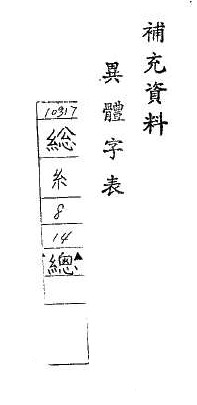 補充資料
異體字表
10317
総
糸
8
14
總▲